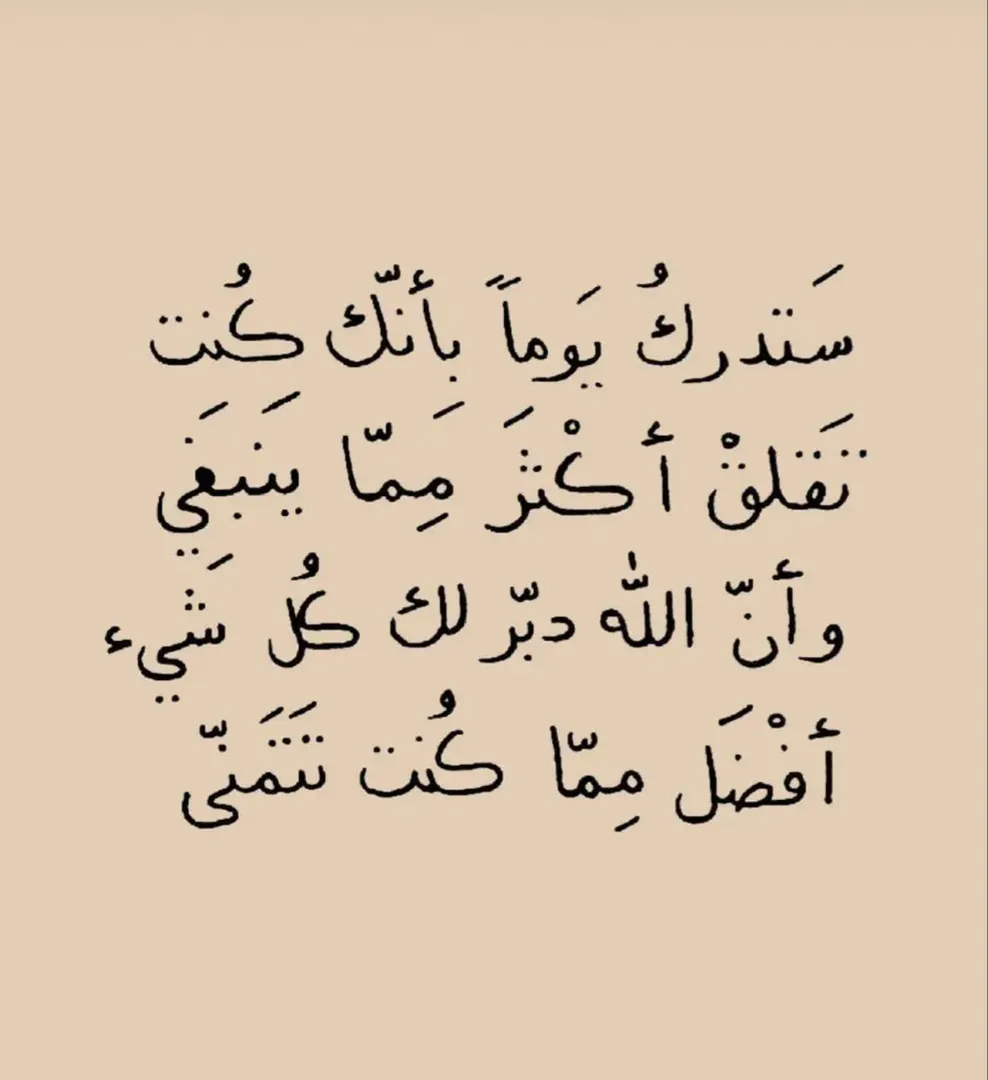 سَتدركُ يَوماً بِأنّك كُنت
تَقلقْ أكْثرَ مِمّا يَنبَغي
وأنّ الله دبّر لك كُل شَيء
أفْضَل مِمّا كُنت تَتَمنّى